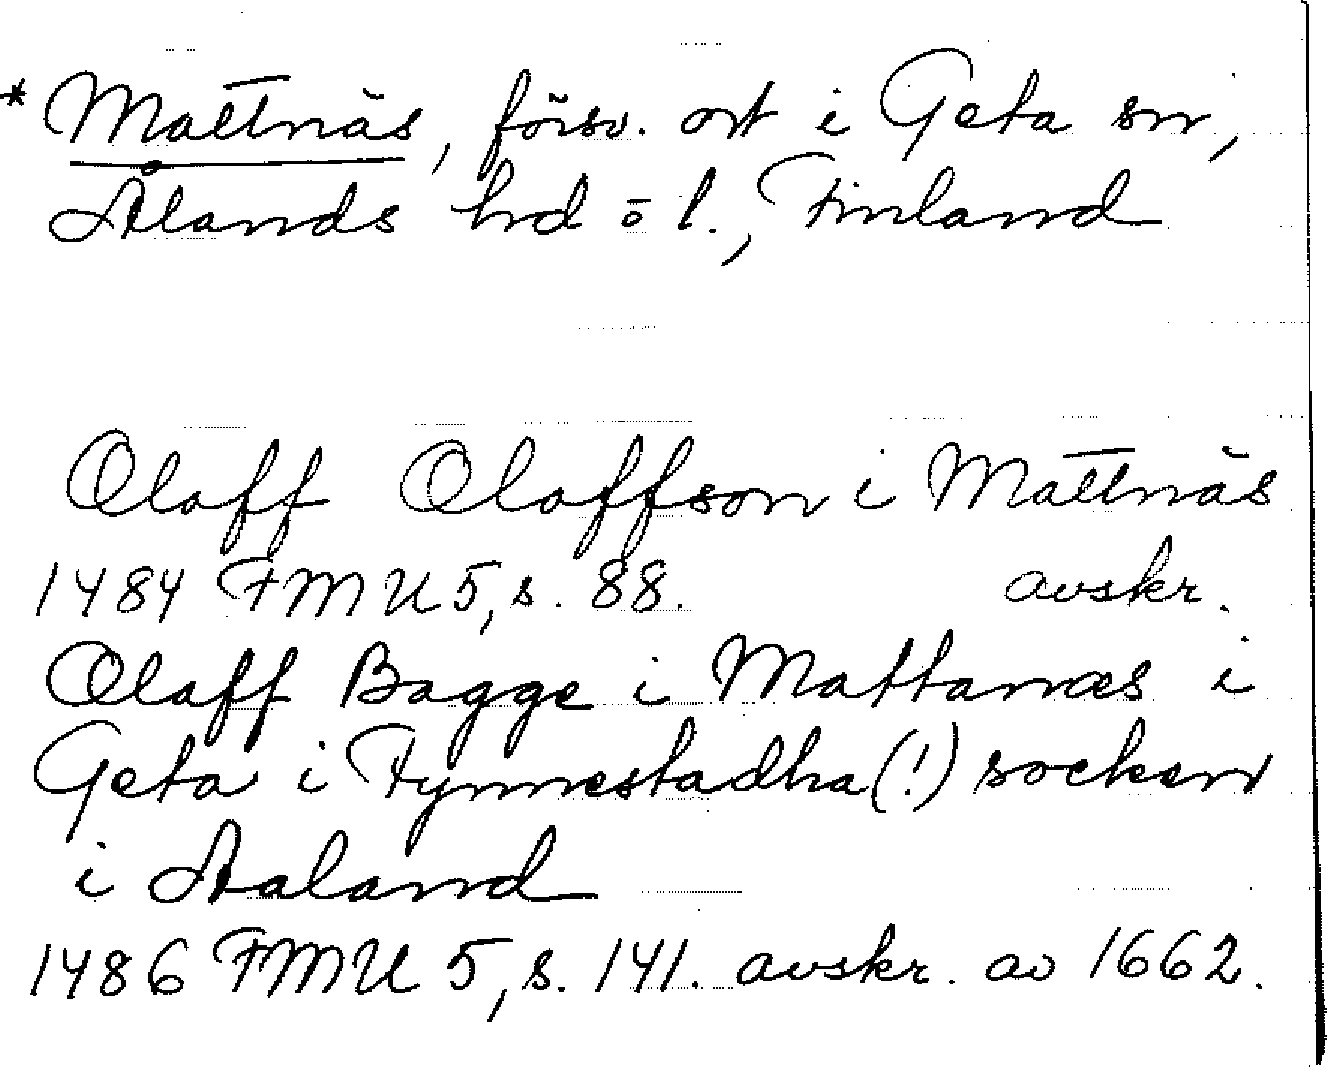 * Mattnäs, försv. ort i Geta sn,
Ålands hd o l., Finland
Olaff Olaffson i Mattnäs
1484 FMU 5, s. 88. avskr.
Olaff Bagge i Mattanæs i
Geta i Fynnestadha (!) socken
i Aaland
1486 FMU 5, s. 141. avskr. av 1662.